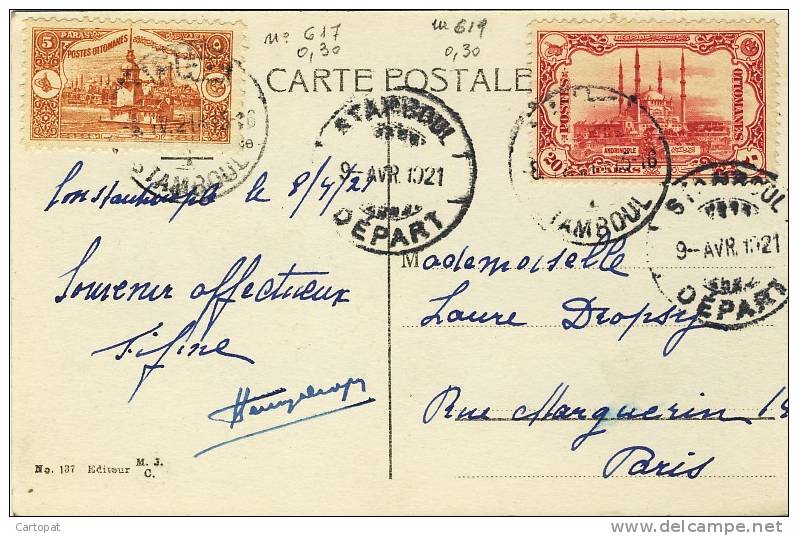 No 617
0,30
No 619
0,30
CARTE POSTALE
5 PARAS
POSTES OTTOMANES
POSTES OTTOMANES
ANDRINOPLE
20
STAMBOUL
STAMBOUL
9-AVR.1921
DÉPART
STAMBOUL
STAMBOUL
9-AVR.1921
DÉPART
Constantinople le 8/4/21
Souvenir affectueux
Fifine
Mademoiselle
Laure Dropsy
Rue Marguerin
Paris
No. 137 Editeur M. J. C.
Cartopat
delcampe.net